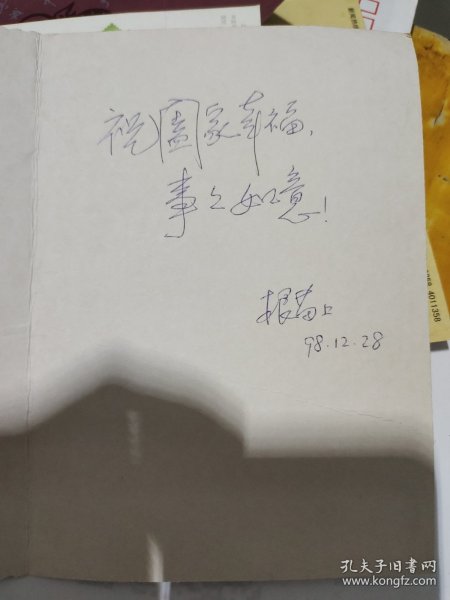 祝阖家幸福,
事々如意!
根苗上
98.12.28
4011358
孔夫子旧书网
www.kongfz.com